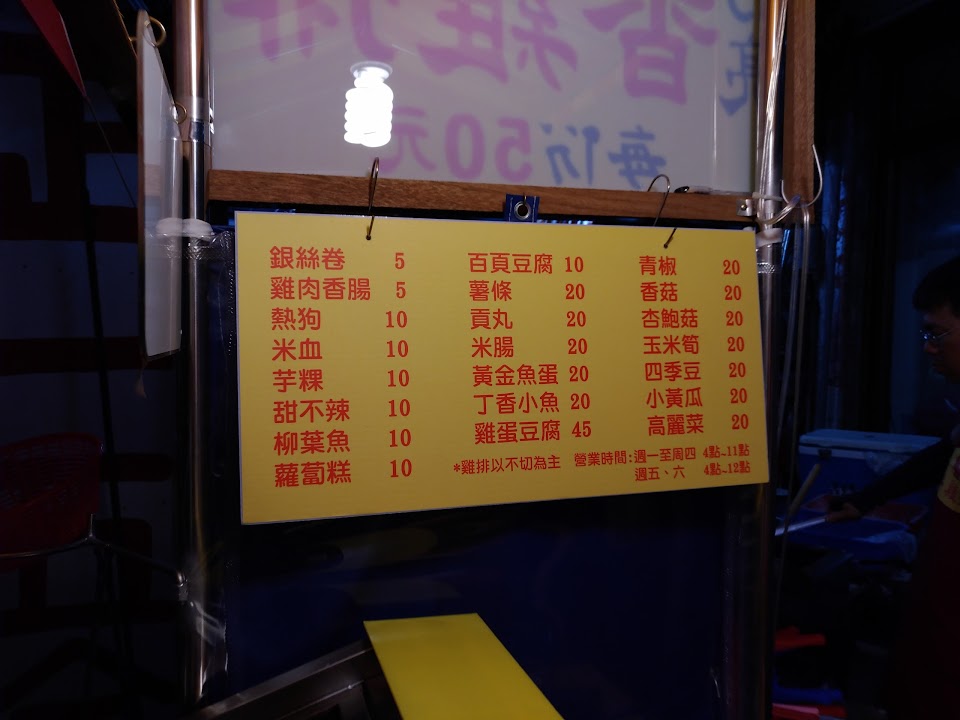 香雞排
每份50元
銀絲卷 5
雞肉香腸 5
熱狗 10
米血 10
芋粿 10
甜不辣 10
柳葉魚 10
蘿蔔糕 10
百頁豆腐 10
薯條 20
貢丸 20
米腸 20
黃金魚蛋 20
丁香小魚 20
雞蛋豆腐 45
青椒 20
香菇 20
杏鮑菇 20
玉米筍 20
四季豆 20
小黃瓜 20
高麗菜 20
*雞排以不切為主
營業時間:週一至周四 4點~11點
週五、六 4點~12點